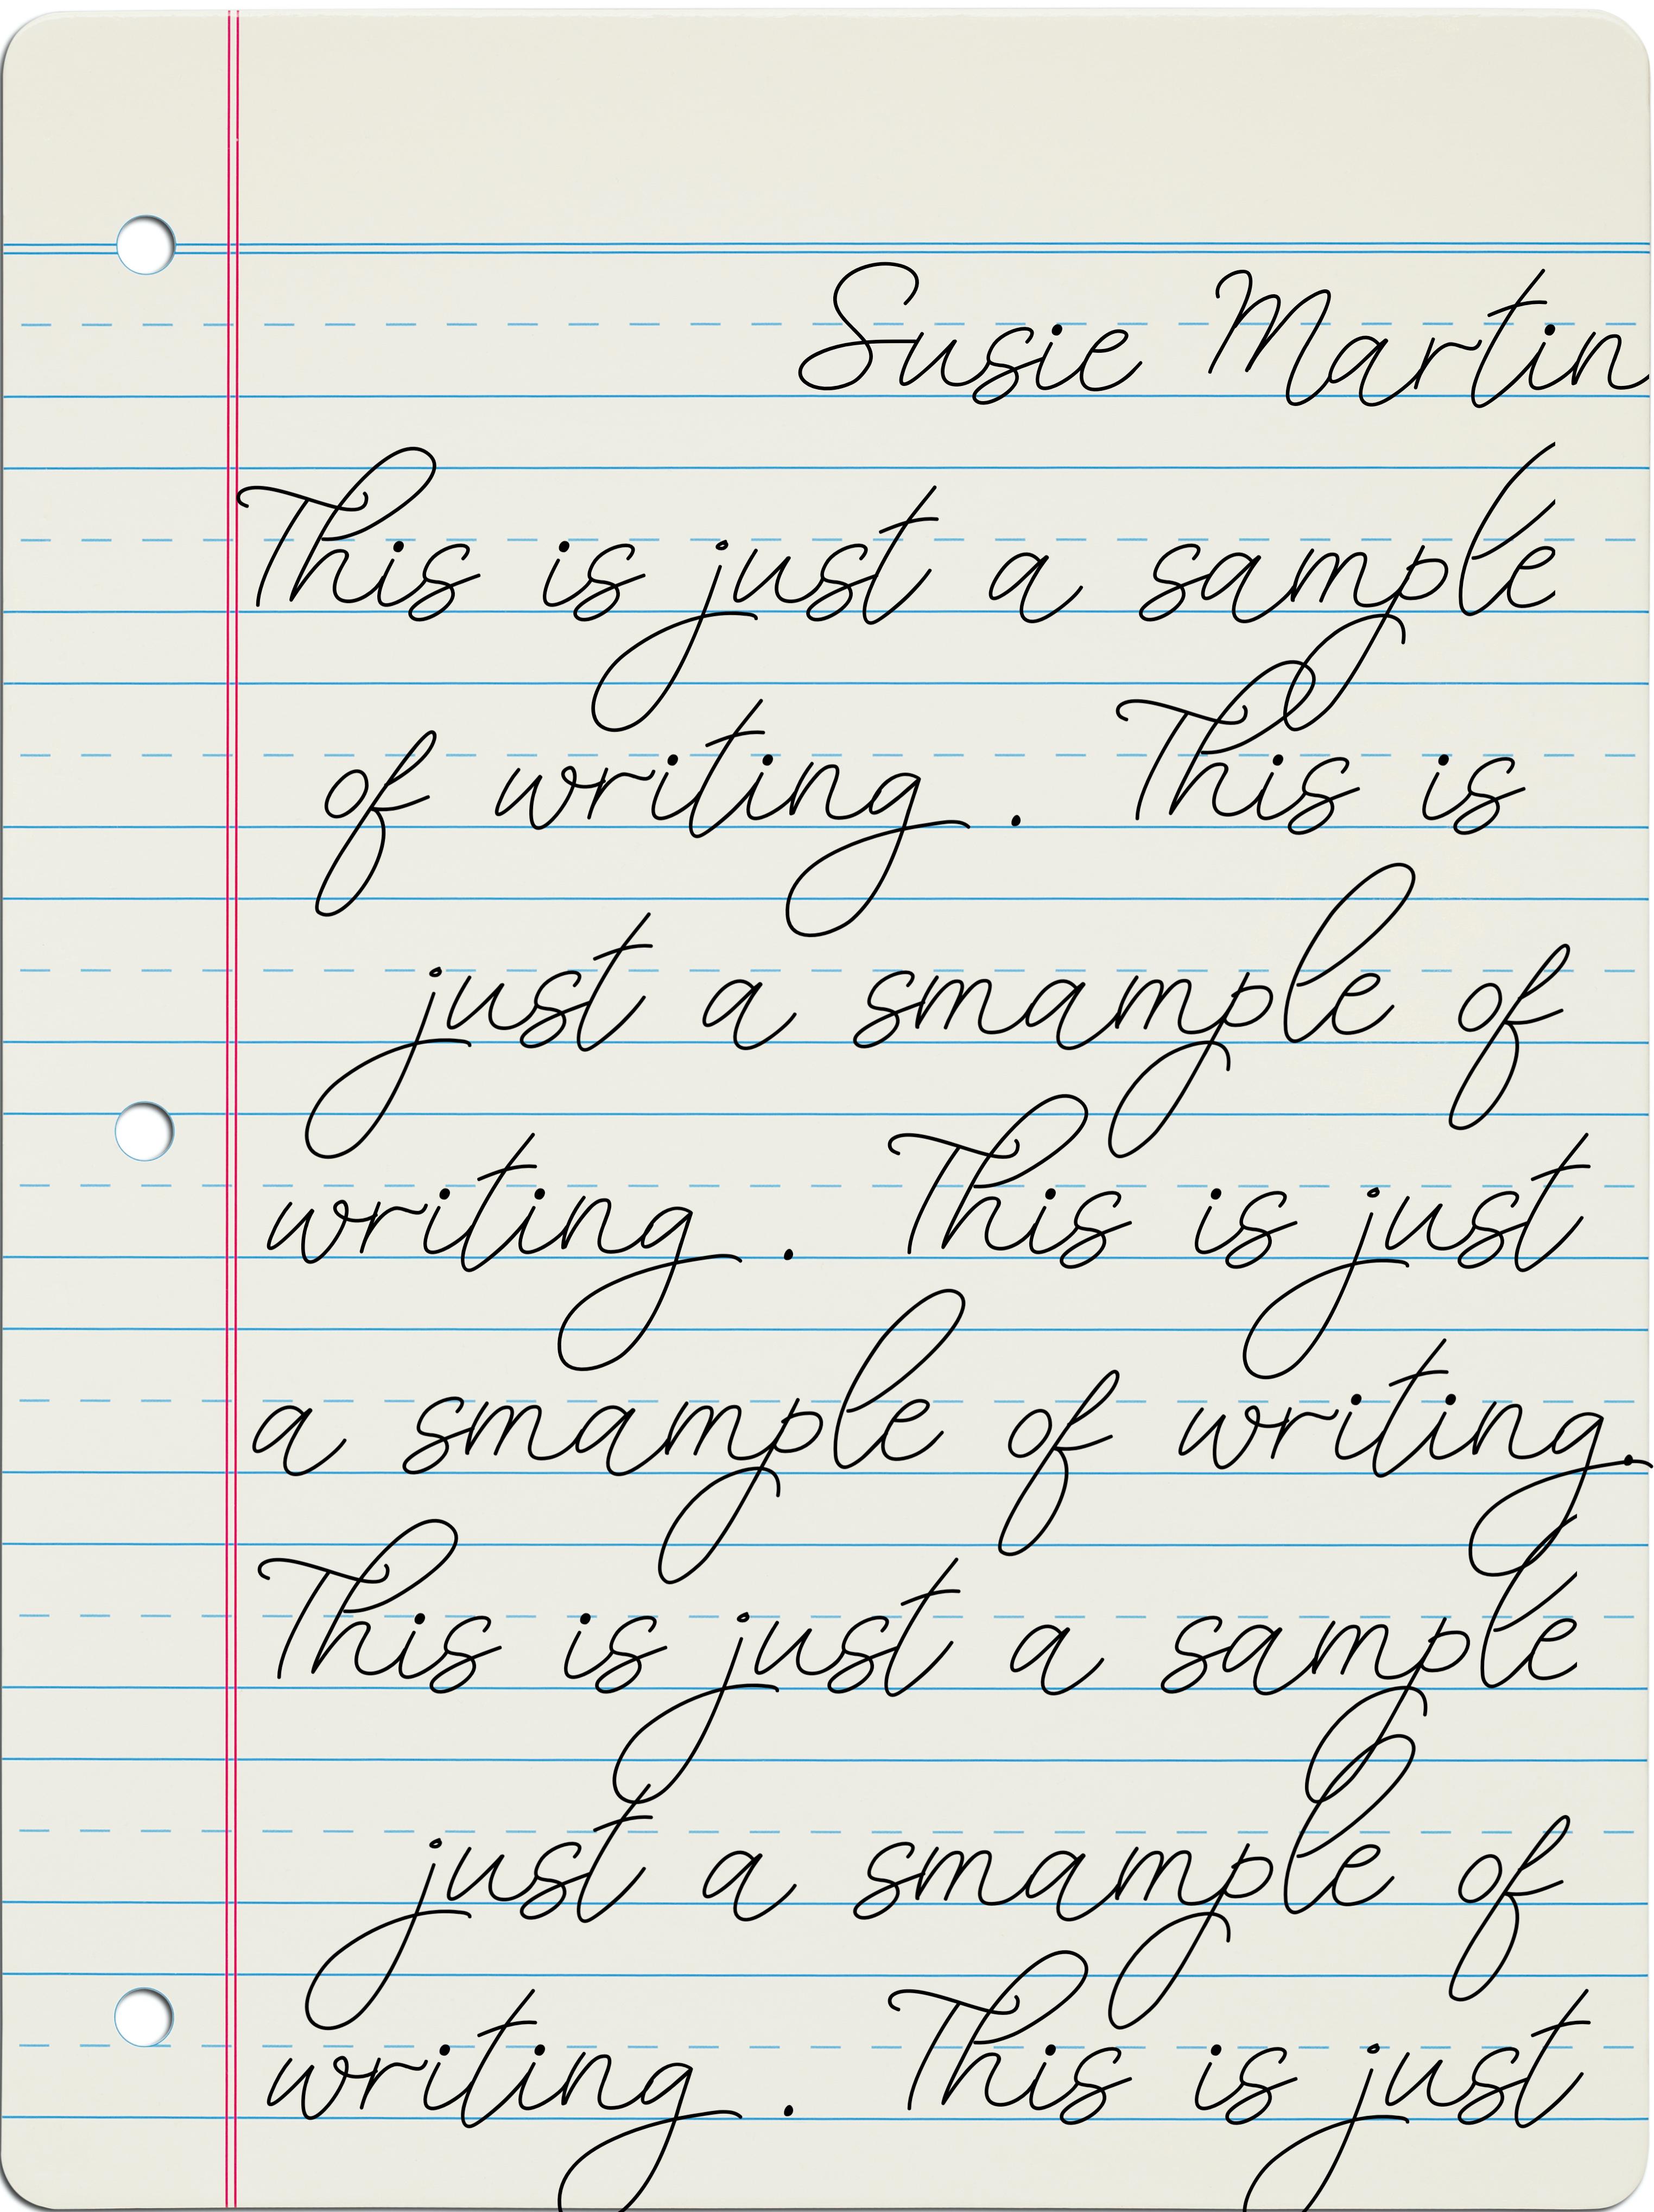 Susie Martin
This is just a sample
of writing . This is
just a smample of
writing . This is just
a smample of writing.
This is just a sample
just a smample of
writing . This is just